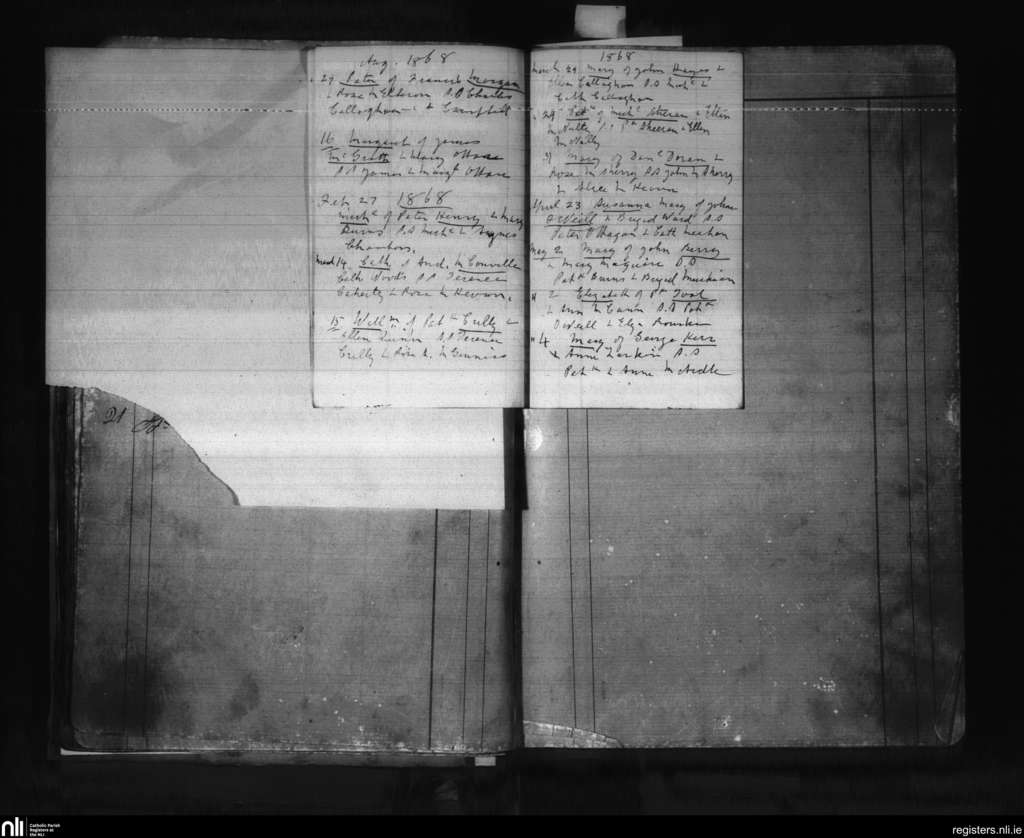 Aug. 1868
29 Peter of Francis Morgan
& Rose McElheron S.S Charles
Callaghan & Campbell
16 Margaret of James
McGrath & Mary O'Hare
S.S James & Margt O'Hare
Feb 27 1868
Michl of Peter Henry & Mary
Burns S.S Michl & Agnes
Chambers,
March 14. Cath of And. McConville
Cath Woods S.S Terence
& Rose McKevin,
15 Willm of Patk Crilly &
Ellen Quinn S.S Terence
Crilly & Rose A. McGinniss
1868
March 29 Mary of John Hayes &
Ellen Callaghan S.S Michl &
Cath Callaghan
" 29 Patk of Michl Sheran & Ellen
McNulty S.S Pk Sheeran & Ellen
McNally
31 Mary of Danl Doran &
Rose McSherry S.S John McSherry
& Alice McKevin
April 23 Susanna Mary of John
O'Neill & Briged Ward S.S
Peter O'Hagan & Cath Meehan
May 2 Mary of John Berry
& Mary Maguire S.S
Patk Burns & Briged
" 2 Elizabeth of Pk Tool
& Ann McCann S.S Patk
O'Neill & Eliza
" 4 Mary of George Kerr
& Anne Larkin S.S
Patk & Anne McArdle
21
nli
Catholic Parish
Registers at
the NLI
registers.nli.ie